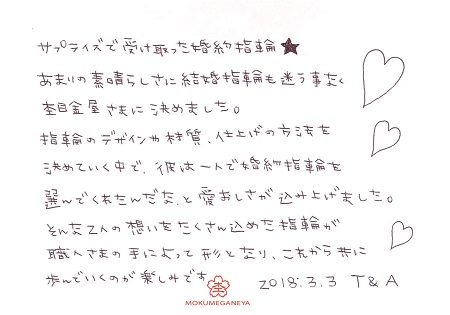 サプライズで受け取った婚約指輪★
あまりの素晴らしさに結婚指輪も迷う事なく
杢目金屋さまに決めました。
指輪のデザインや材質、仕上げの方法を
決めていく中で、彼は一人で婚約指輪を
選んでくれたんだな、と愛おしさが込み上げました。
そんな2人の想いをたくさん込めた指輪が
職人さまの手によって形となり、これから共に
歩んでいくのが楽しみです
2018.3.3 T&A
MOKUMEGANEYA